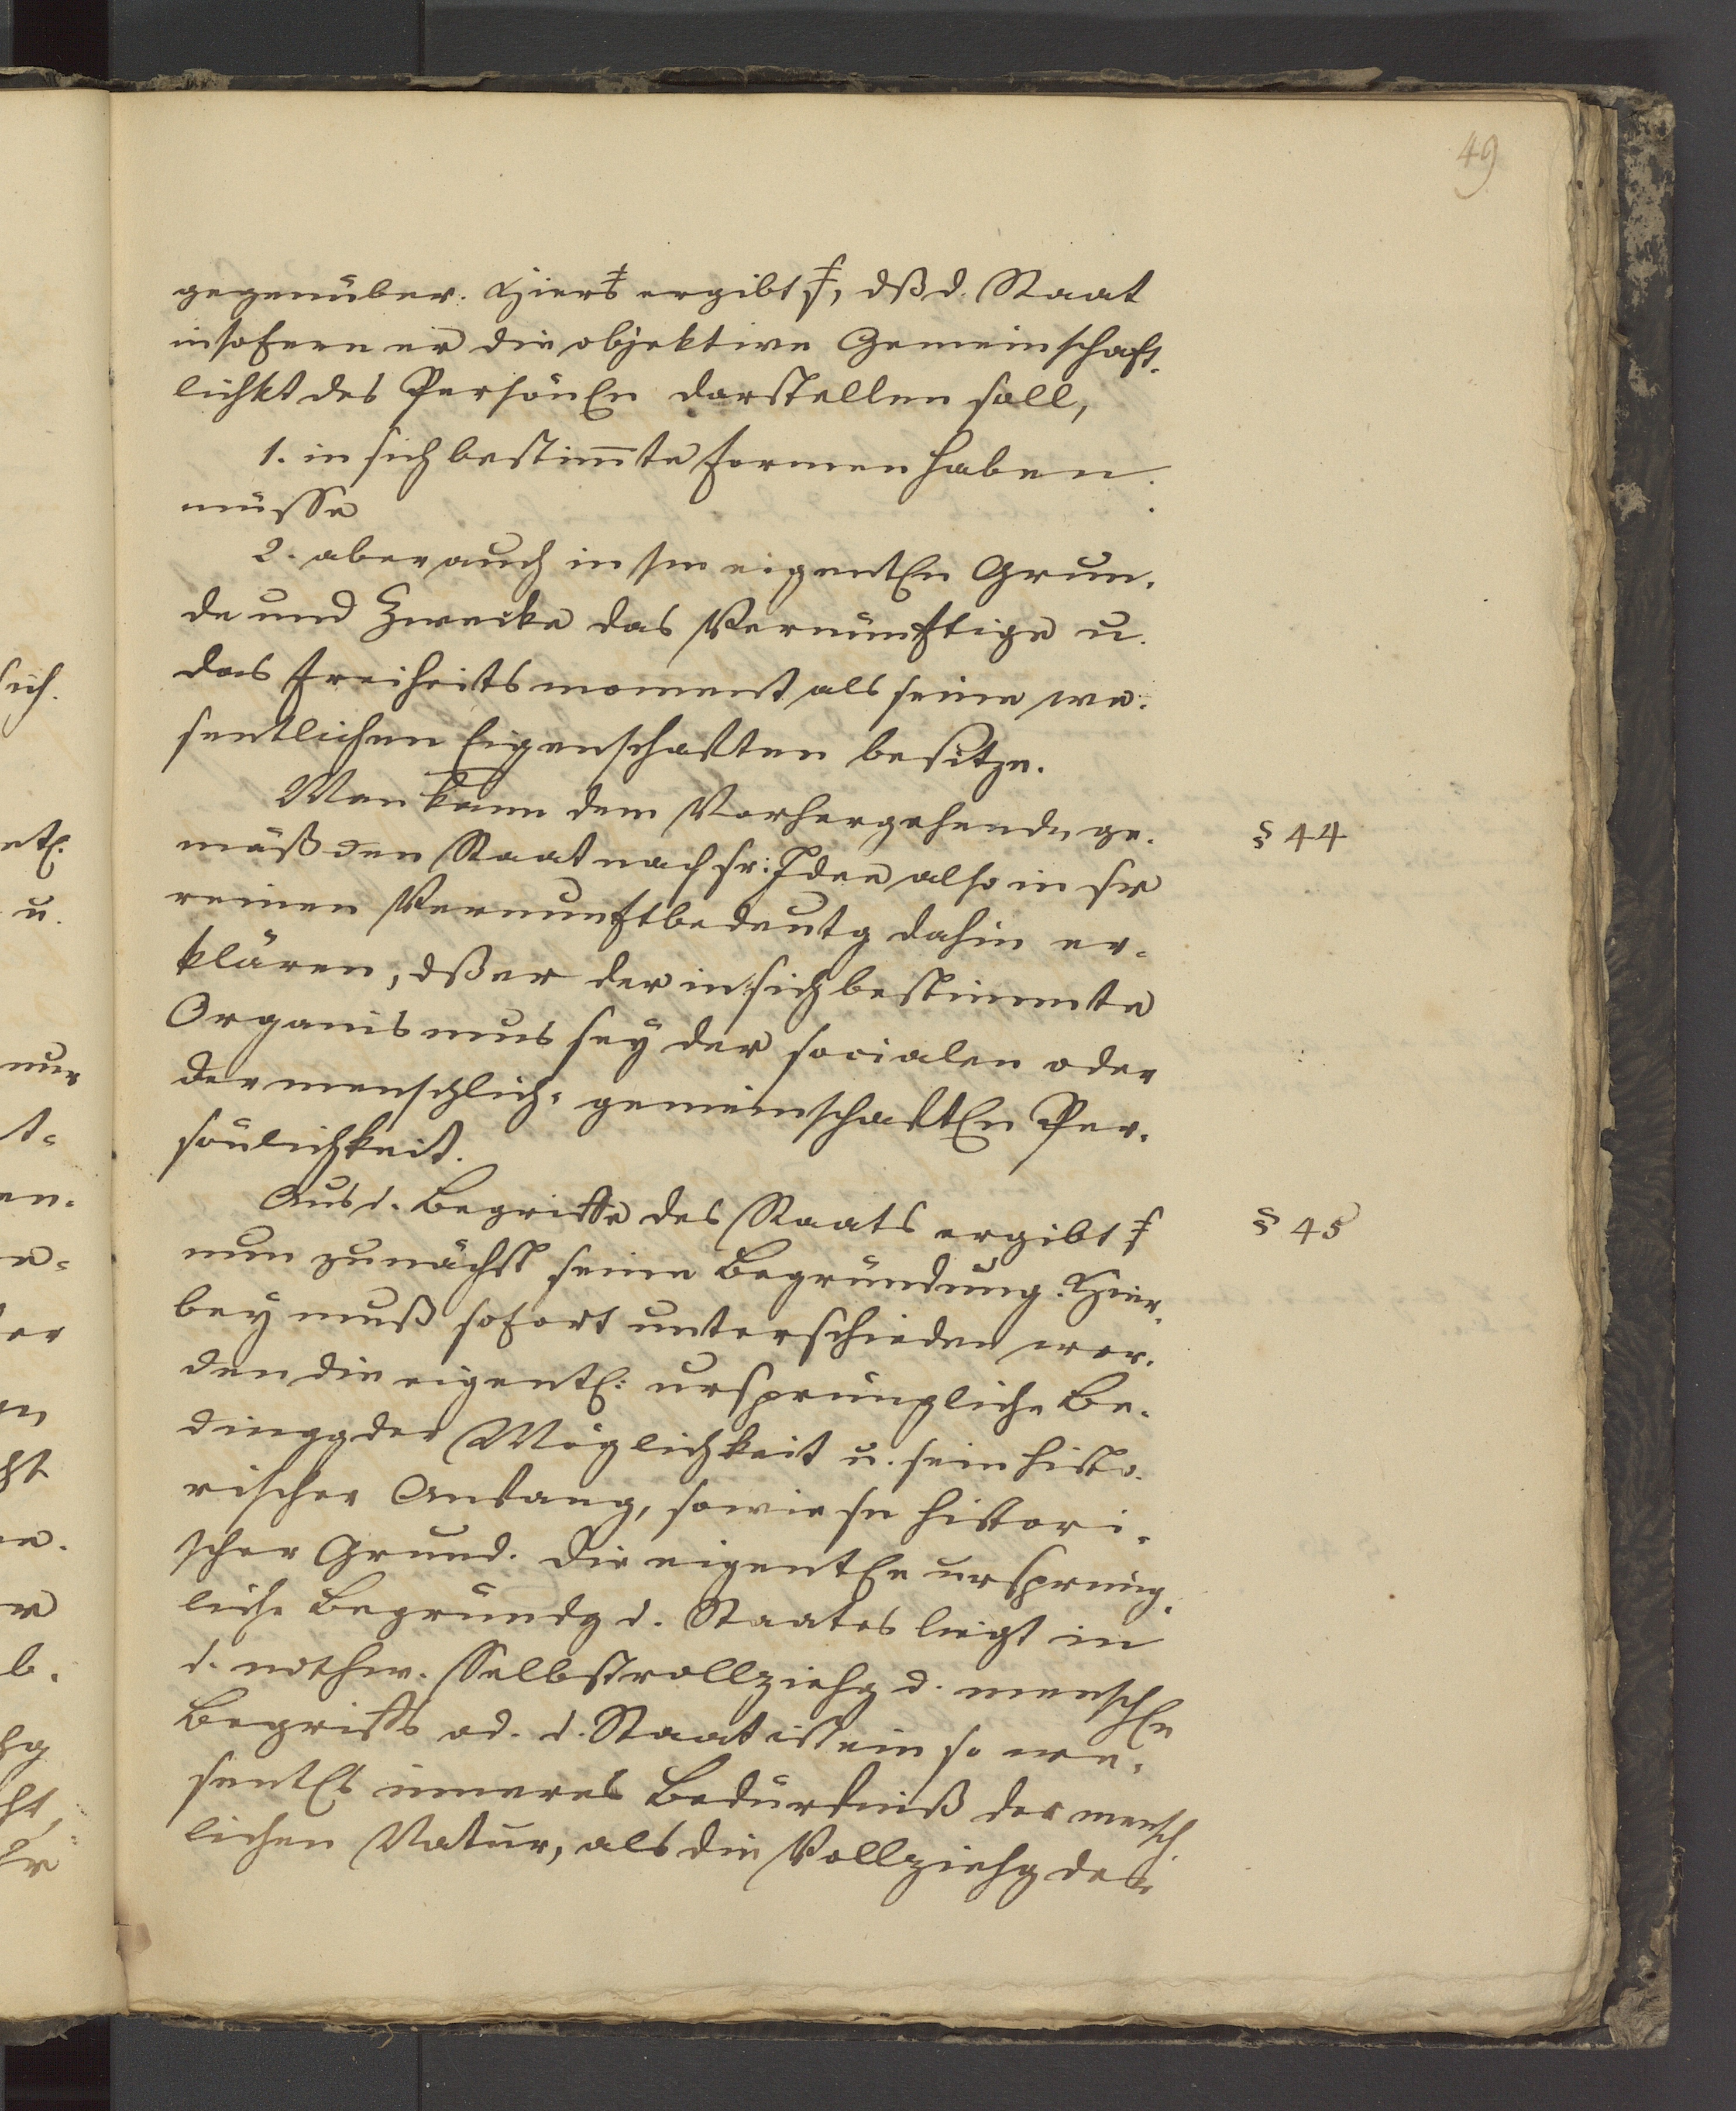 49
gegenüber. Hieraus ergibt sich, dß d. Staat
insofern er die objektive Gemeinschaft-
lichkt des Persönlichen darstellen soll,
1. in sich bestim̅te Formen haben
müsse
2. aber auch in sm eigentlichen Grun-
de und Zwecke das Vernünftige u.
das Freiheitsmoment als seine we-
sentlichen Eigenschaften besitze.
Man kann dem Vorhergehenden ge- § 44
mäß den Staat nach sr: Idee also in sr
reinen Vernunftbedeutg dahin er-
klären, dß er der in sich bestimmte
Organismus sey der socialen oder
der menschlich-gemeinschaftlichen Per-
sönlichkeit.
Aus d. Begriffe des Staats ergibt sich § 45
nun zunächst seine Begründung. Hier-
bey muß sofort unterschieden wer-
den die eigentl: ursprüngliche Be-
dingg der Möglichkeit u. sein histo-
rischer Anfang, sowie sn histori-
scher Grund. Die eigentliche ursprüng-
liche Begründg d. Staates liegt in
d. nothw. Selbstvollziehg d. menschlichen
Begriffs od. d. Staat ist ein so we-
sentliches inneres Bedürfniß der mensch-
lichen Natur, als die Vollziehg des-